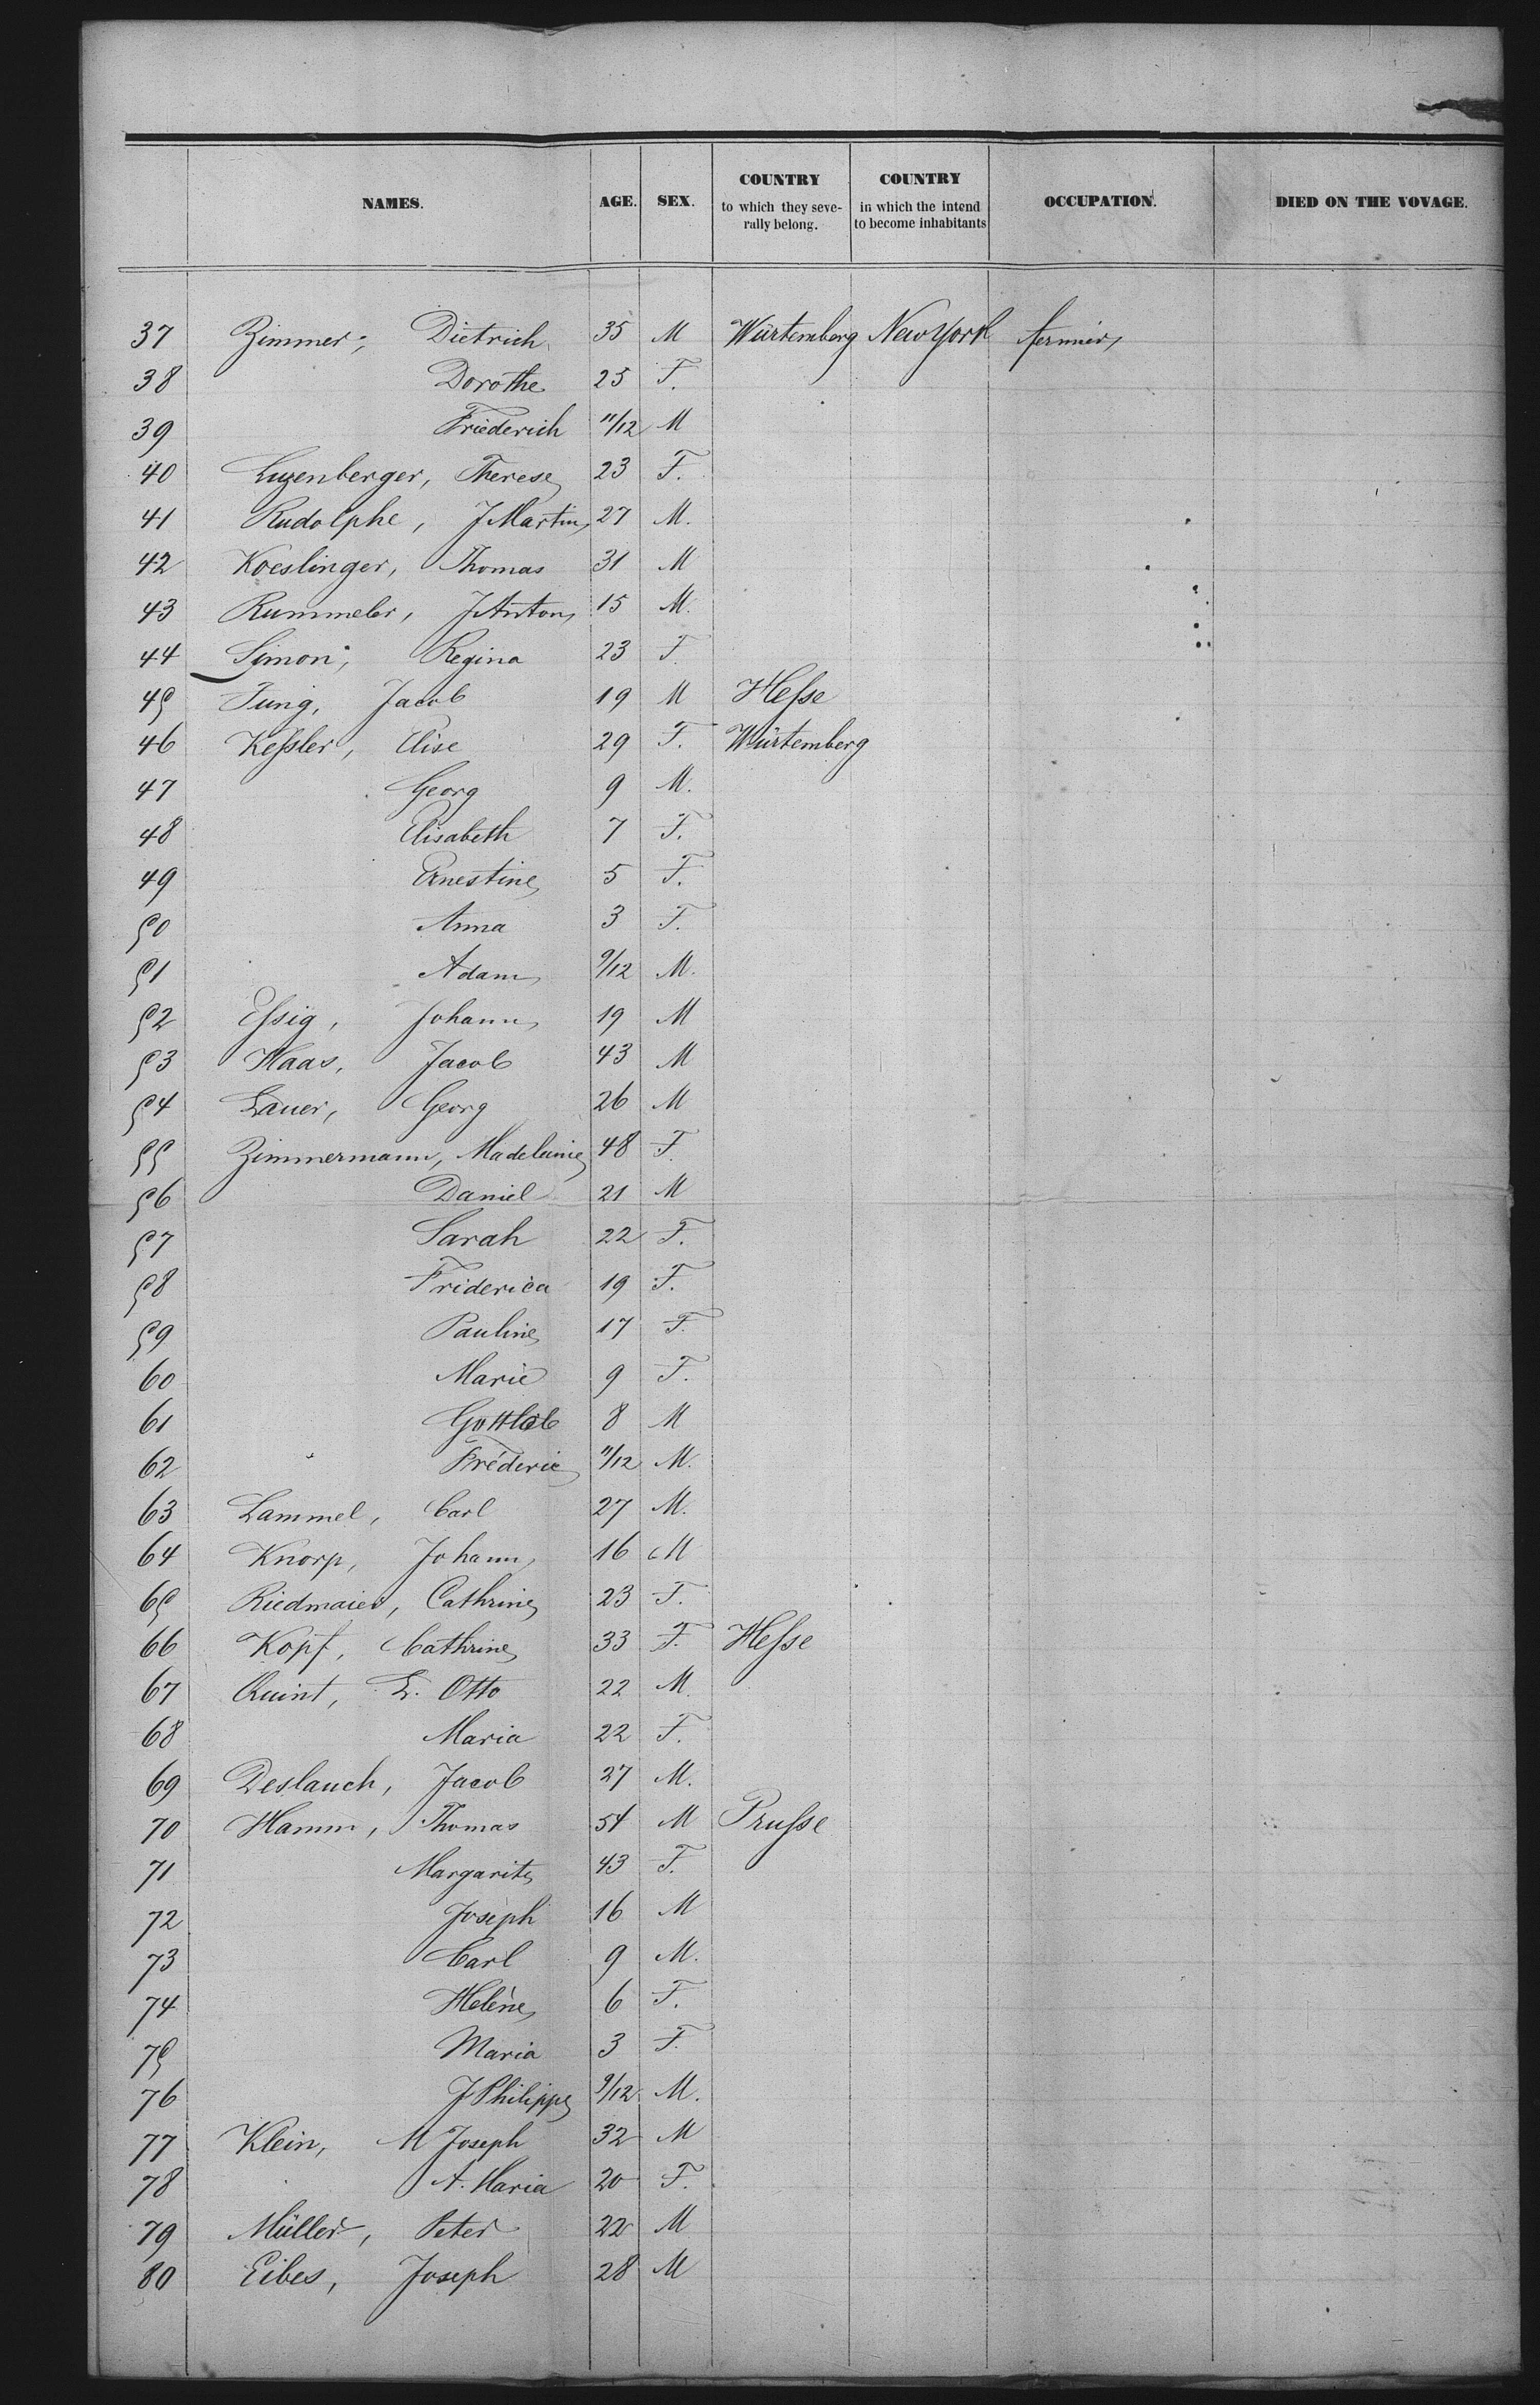 NAMES. AGE. SEX. COUNTRY to which they seve-rally belong. COUNTRY in which the intend to become inhabitants OCCUPATION. DIED ON THE VOYAGE.
37 Zimmer, Dietrich 35 M Würtemberg New York fermier
38 Dorothe 25 F.
39 Friederich 11/12 M
40 Luzenberger, Therese 23 F.
41 Rudolphe, J Martin 27 M.
42 Koeslinger, Thomas 31 M
43 Rummeler, J Anton 15 M.
44 Simon, Regina 23 F.
45 Jung, Jacob 19 M Hesse
46 Kessler, Elise 29 F. Würtemberg
47 Georg 9 M.
48 Elisabeth 7 F.
49 Ernestine 5 F.
50 Anna 3 F.
51 Adam 9/12 M.
52 Essig, Johann 19 M
53 Haas, Jacob 43 M
54 Lauer, Georg 26 M
55 Zimmermann, Madeleine 48 F.
56 Daniel 21 M
57 Sarah 22 F.
58 Friderica 19 F.
59 Pauline 17 F.
60 Marie 9 F.
61 Gottlob 8 M
62 Fréderic 11/12 M.
63 Lammel, Carl 27 M.
64 Knorp, Johann 16 M
65 Riedmaier, Cathrine 23 F.
66 Kopf, Cathrine 33 F. Hesse
67 Quint, L. Otto 22 M.
68 Maria 22 F.
69 Deslauch, Jacob 27 M.
70 Hamm, Thomas 54 M Prusse
71 Margarite 43 F.
72 Joseph 16 M
73 Carl 9 M.
74 Helène 6 F.
75 Maria 3 F.
76 J Philippe 9/12 M.
77 Klein, M Joseph 32 M
78 A. Maria 20 F.
79 Müller, Peter 22 M
80 Eibes, Joseph 28 M